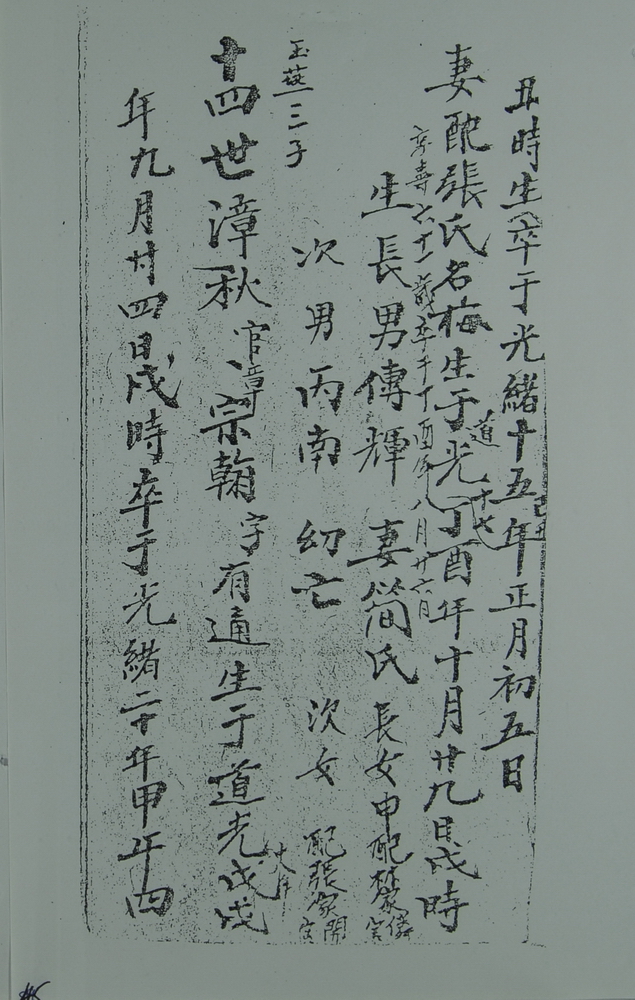 丑時生卒于光緒十五年己丑正月初五日
妻配張氏名梅生于道光十七丁酉年十月廿九日戌時
享壽六十一歲卒于丁酉年八月廿六日
生長男傳輝 妻簡氏 長女申配林家
次男丙南 幼亡 次女 配張家
玉 三子
十四世漳秋官章宗翰字有通生于道光戊戌十八年
年九月廿四日戌時卒于光緒二十年甲午四